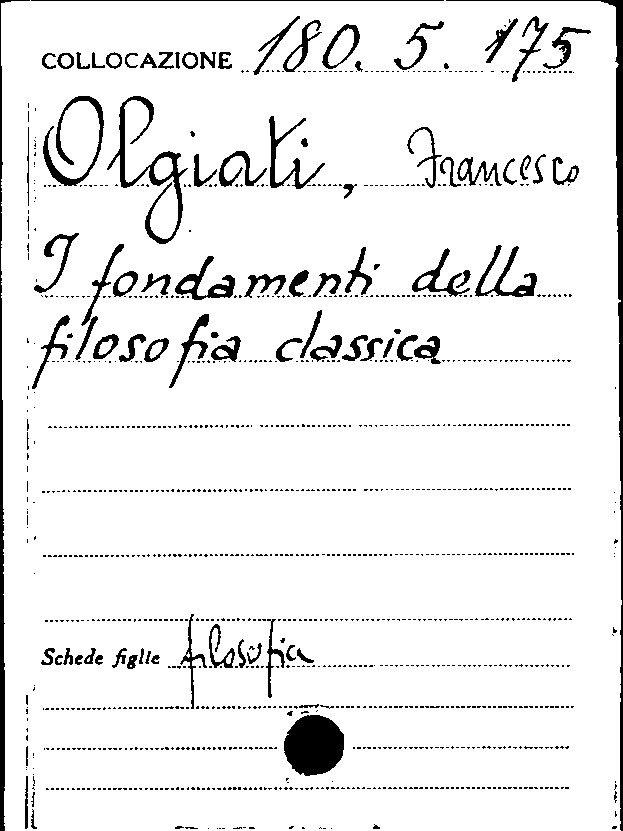 COLLOCAZIONE 180. 5. 175
Olgiati, Francesco
I fondamenti della
filosofia classica
Schede figlie filosofia